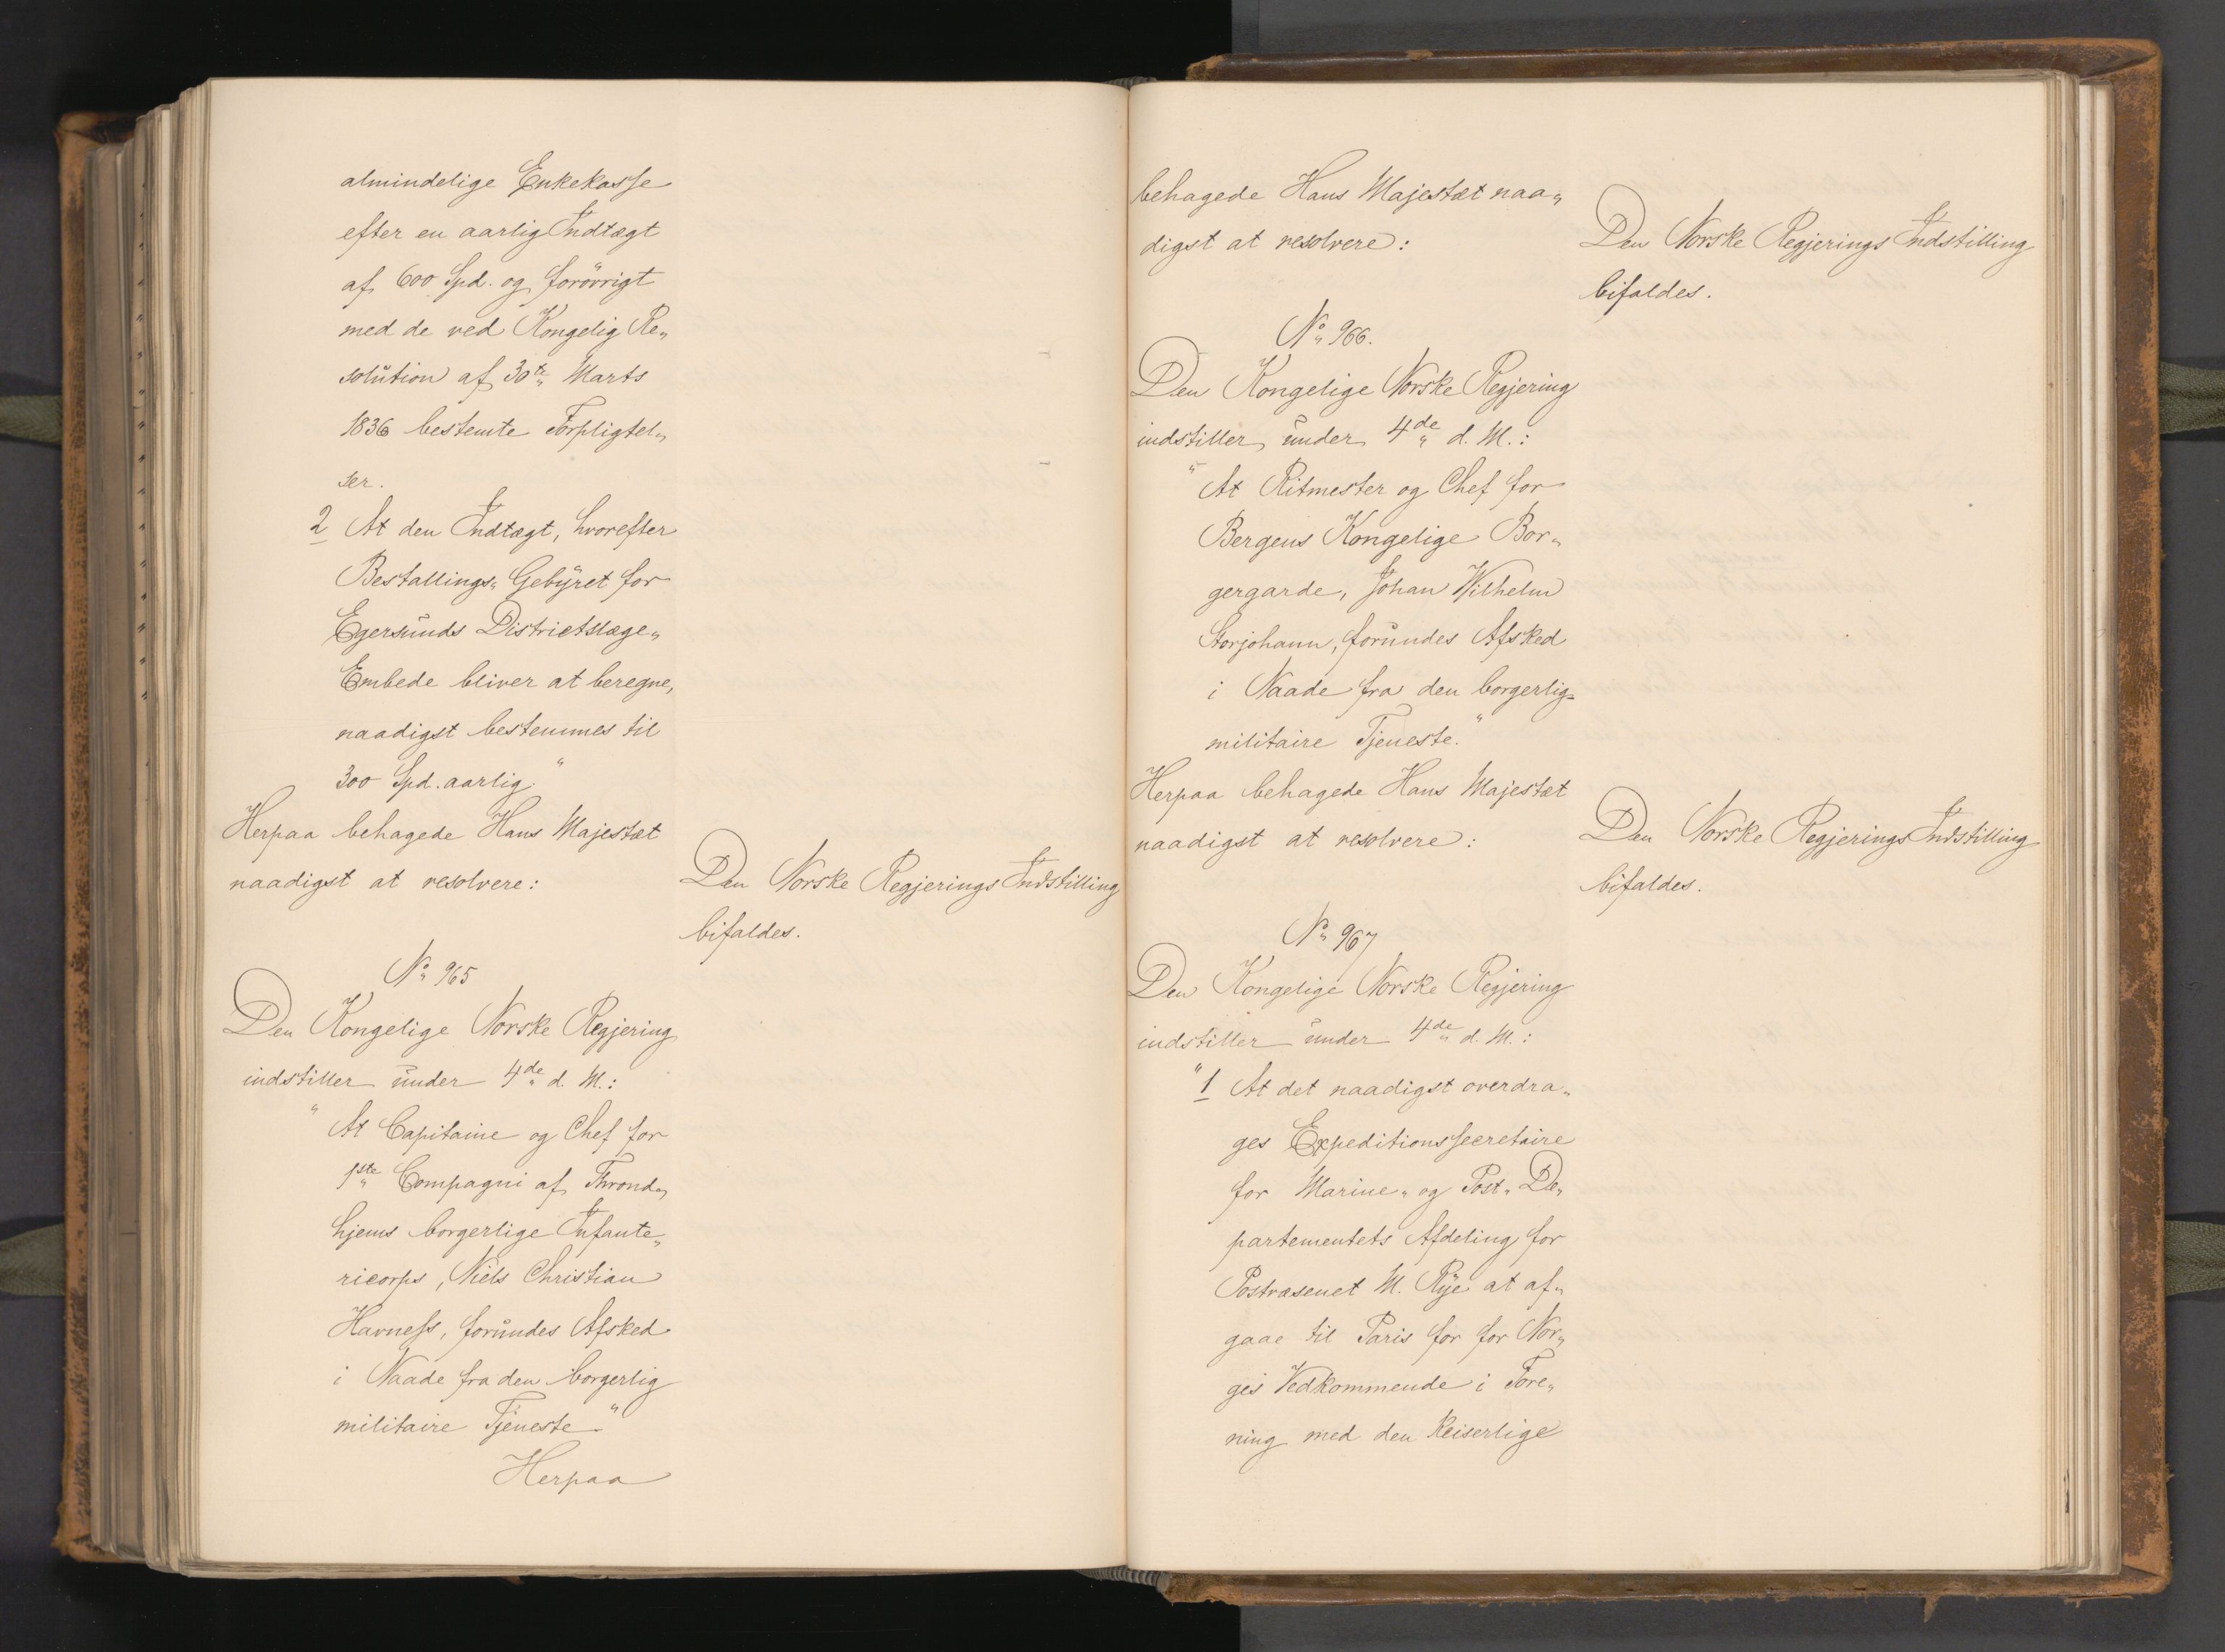 almindelige Enkekasse
efter en aarlig Indtægt
af 600 Spd. og forövrigt
med de ved Kongelig Re„
solution af 30te Marts
1836 bestemte Forpligtel„
ser.
2 At den Indtægt, hvorefter
Bestallings„ Gebyret for
Egersunds Districtslæge„
Embede bliver at beregne,
naadigst bestemmes til
300 Spd. aarlig."
Herpaa behagede Hans Majestæt
naadigst at resolvere:
Den Norske Regjerings Indstilling
bifaldes.
No 965
Den Kongelige Norske Regjering
indstiller under 4de d. M.:
"At Capitaine og Chef for
1ste Compagni af Thrond„
hjems borgerlige Infante„
ricorps, Niels Christian
Harness, forundes Afsked
i Naade fra den borgerlig
militaire Tjeneste"
Herpaa
behagede Hans Majestæt naa„
digst at resolvere:
Den Norske Regjerings Indstilling
bifaldes.
No 966.
Den Kongelige Norske Regjering
indstiller under 4de d. M.:
"At Ritmester og Chef for
Bergens Kongelige Bor„
gergarde, Johan Wilhelm
Storjohann, forundes Afsked
i Naade fra den borgerlig=
militaire Tjeneste."
Herpaa behagede Hans Majestæt
naadigst at resolvere:
Den Norske Regjerings Indstilling
bifaldes.
No 967
Den Kongelige Norske Regjering
indstiller under 4de d. M.:
"1 At det naadigst overdra„
ges Expeditionssecretaire
for Marine„ og Post„ De„
partementets Afdeling for
Postvæsenet M. Rye at af„
gaae til Paris for for Nor„
ges Vedkommende i Fore„
ning med den Keiserlige